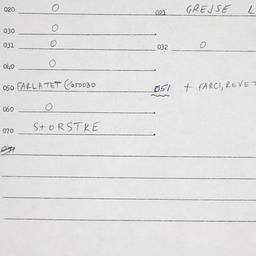 020 O 021 GREJSE L
030 O
031 O 032 O
040 O
050 FARLATET 051 + FARCI, REVET
060 O
070 STORSTKE